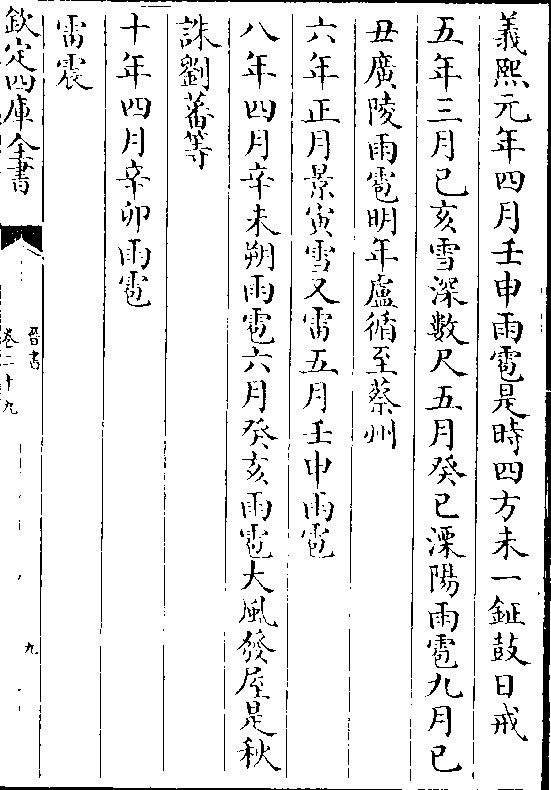 義熙元年四月壬申雨雹是時四方未一鉦鼓日戒
五年三月己亥雪深數尺五月癸巳溧陽雨雹九月己
丑廣陵雨雹明年盧循至蔡州
六年正月景寅雪又雷五月壬申雨雹
八年四月辛未朔雨雹六月癸亥雨雹大風發屋是秋
誅劉蕃等
十年四月辛卯雨雹
雷震
欽定四庫全書
晉書
卷二十九
九